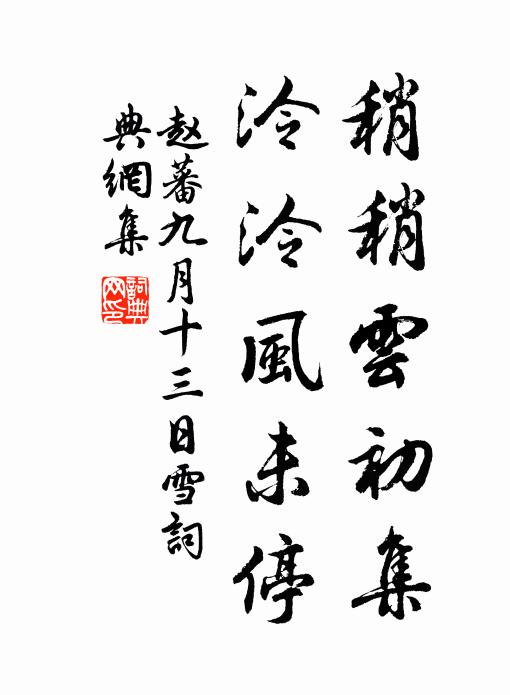 稍稍雲初集
泠泠風未停
赵蕃九月十三日雪詞
典網集
詞典
网印